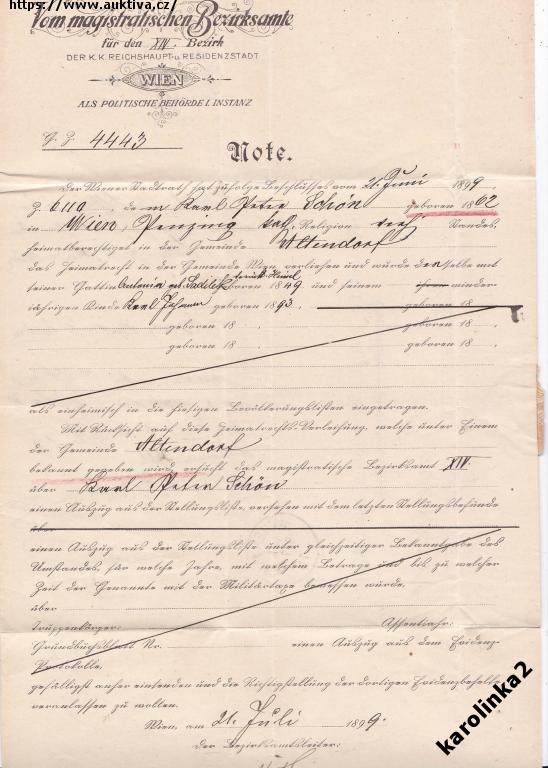 https://www.auktiva.cz/
Vom magistratischen Bezirksamte
für den XIV. Bezirk
DER K. K. REICHSHAUPT- u. RESIDENZSTADT
WIEN
ALS POLITISCHE BEHÖRDE I. INSTANZ
G. Z. 4443
Note.
Der Wiener Stadtrath hat zufolge Beschlusses vom 21. Juni 1899
Z. 6110 dem Karl Peter Schön geboren 1862
in Wien, Penzing kath. Religion Standes,
heimatberechtiget in der Gemeinde Altendorf
das Heimatrecht in der Gemeinde Wien verliehen und wurde derselbe mit
seiner Gattin geboren 1849 und seinem ihrem minder-
jährigen Kinde Karl Johann geboren 1893 geboren 18
geboren 18 . geboren 18 .
geboren 18 . geboren 18 .
als einheimisch in die hiesigen Bevölkerungslisten eingetragen.
Mit Rücksicht auf diese Heimatrechts-Verleihung, welche unter Einem
der Gemeinde Altendorf
bekannt gegeben wird, ersucht das magistratische Bezirksamt XIV.
über Karl Peter Schön
einen Auszug aus der Stellungsliste, versehen mit dem letzten Stellungsbefunde
über
einen Auszug aus der Stellungsliste unter gleichzeitiger Bekanntgabe des
Umstandes, für welche Jahre, mit welchem Betrage und bis zu welcher
Zeit der Genannte mit der Militärtaxe bemessen wurde,
über
Truppenkörper: Assentjahr:
Grundbuchsblatt Nr. einen Auszug aus dem Evidenz-
Protokolle,
gefälligst anher einsenden und die Richtigstellung der dortigen Evidenzbehelfe
veranlassen zu wollen.
Wien, am 21. Juli 1899.
Der Bezirksamtsleiter:
karolinka2